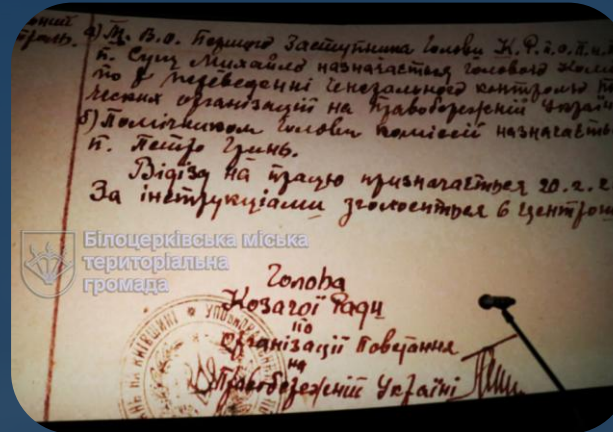 а) Т. В. О. Першого Заступника Голови К. Р. п. о. П. н. П.
п. Сущ Михайло назначається головою Коміс
по переведенні генерального контролю
ческих організацій на Правобережній Україні
б) Помічником Голови комісії назначаєть
п. Петро Гринь.
Відїзд на працю призначається 20.2.2
За інструкціами зголоситься в Центром
Білоцерківська міська
територіальна
громада
Голова
Козачої Ради
по
Організації Повстання
на
Правобережній Україні